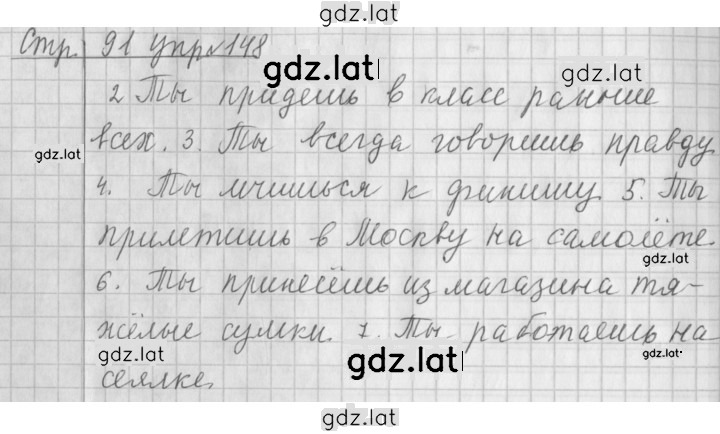 gdz.lat
Стр. 91 упр№148
gdz.lat
2 Ты придешь в класс раньше
всех. 3. Ты всегда говоришь правду
gdz.lat
4. Ты мчишься к финишу. 5. Ты
прилетишь в Москву на самолёте.
gdz.lat
6. Ты принесёшь из магазина тя-
жёлые сумки. 7. Ты работаешь на
gdz.lat gdz.lat gdz.lat
сеялке.
gdz.lat